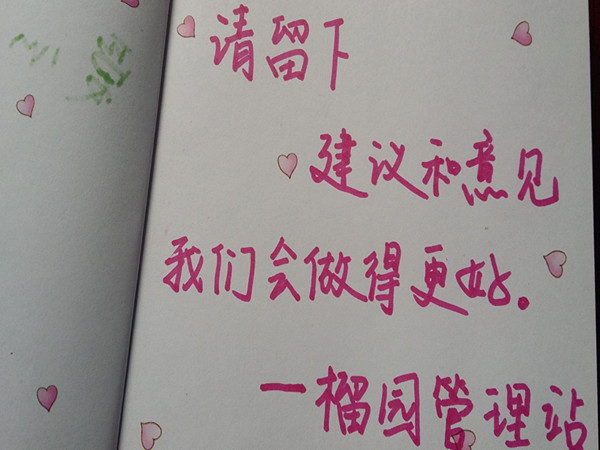 请留下
建议和意见
我们会做得更好.
一榴园管理站